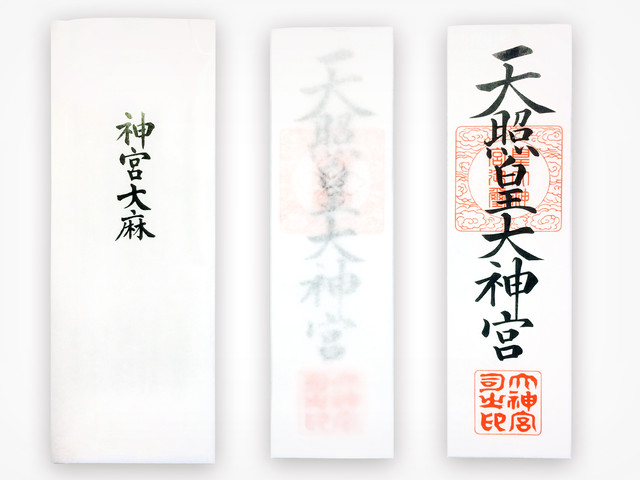 神宮大麻
天照皇大神宮
天照皇大神宮
大神宮
司之印